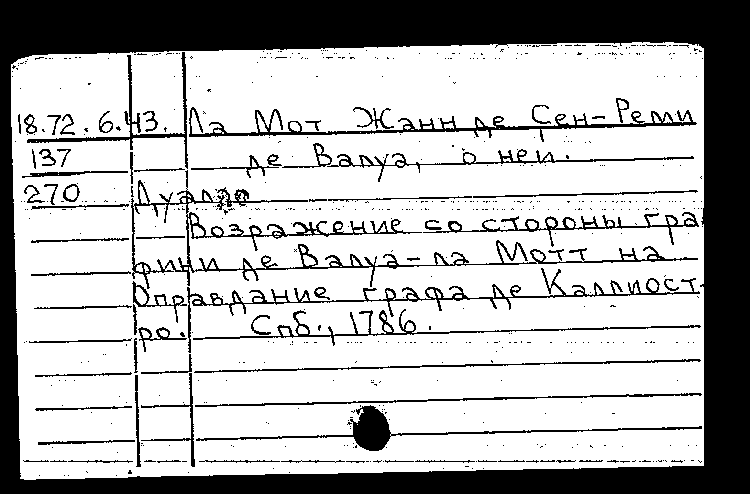 18.72.6.43. Ла Мот Жанн де Сен-Реми
137 де Валуа, о ней.
270 Дуал
Возражение со стороны гра
фини де Валуа-ла Мотт на
Оправдание графа де Каллиост-
ро. Спб., 1786.